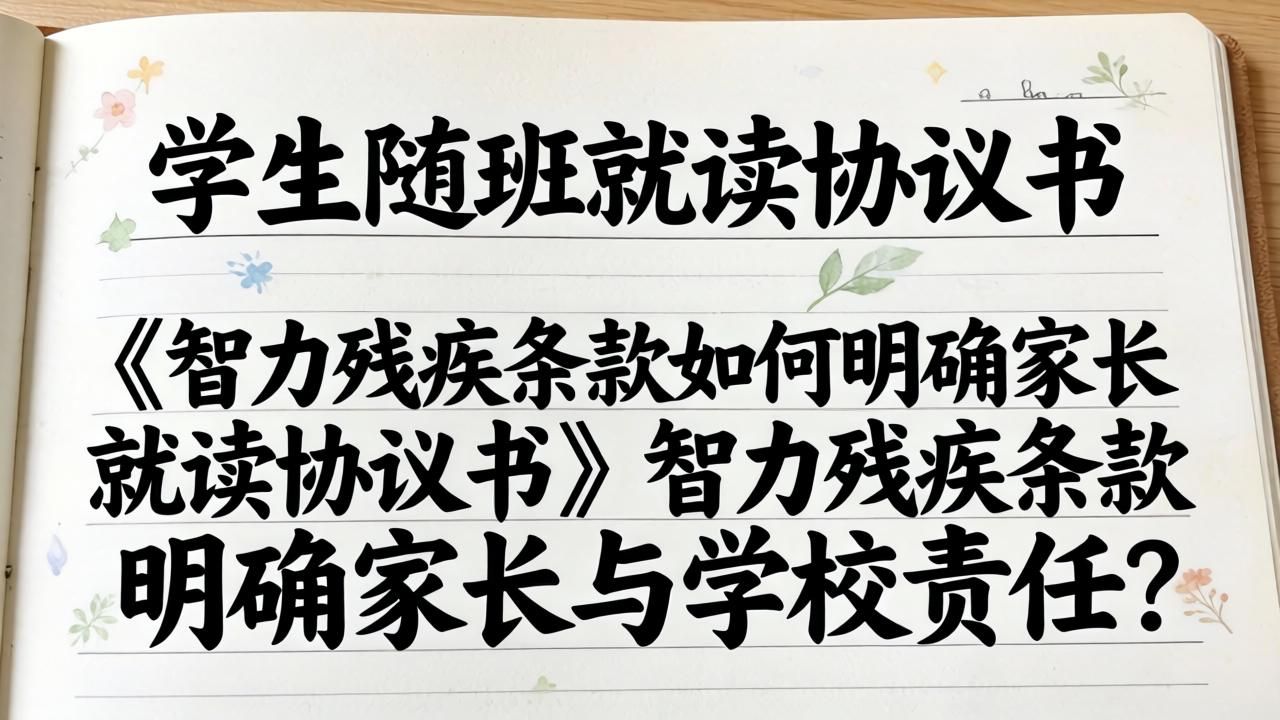 学生随班就读协议书
《智力残疾条款如何明确家长
就读协议书》智力残疾条款
明确家长与学校责任？